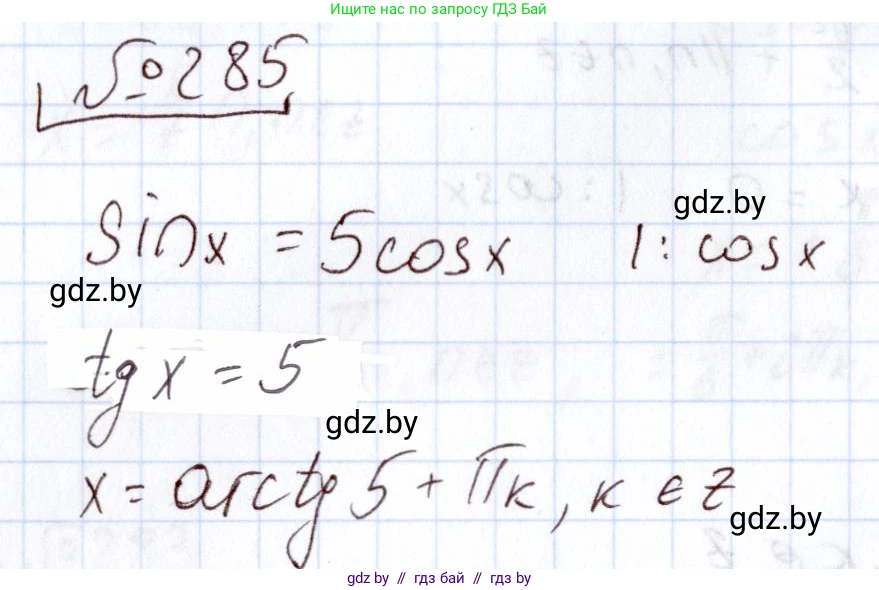 Ищите нас по запросу ГДЗ Бай
№285
sin x = 5 cos x |: cos x
gdz.by
gdz.by
tg x = 5
gdz.by
x = arctg 5 + πк, к ∈ z
gdz.by
gdz by // гдз бай // гдз by